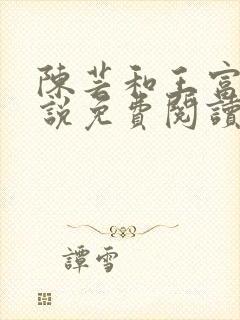 陳芸和王富
說免費閱讀
譚雪